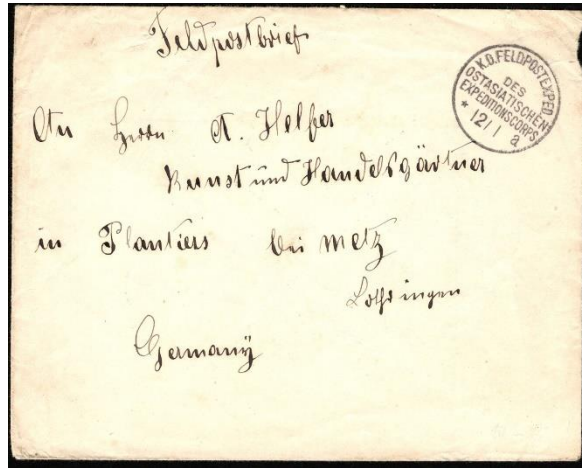 Feldpostbrief
K.D. FELDPOSTEXPED.
DES
OSTASIATISCHEN
EXPEDITIONSCORPS
* 12/1 a
An Herrn A. Helfer
Kunst und Handelsgärtner
in Plantiers bei Metz
Lothringen
Germany